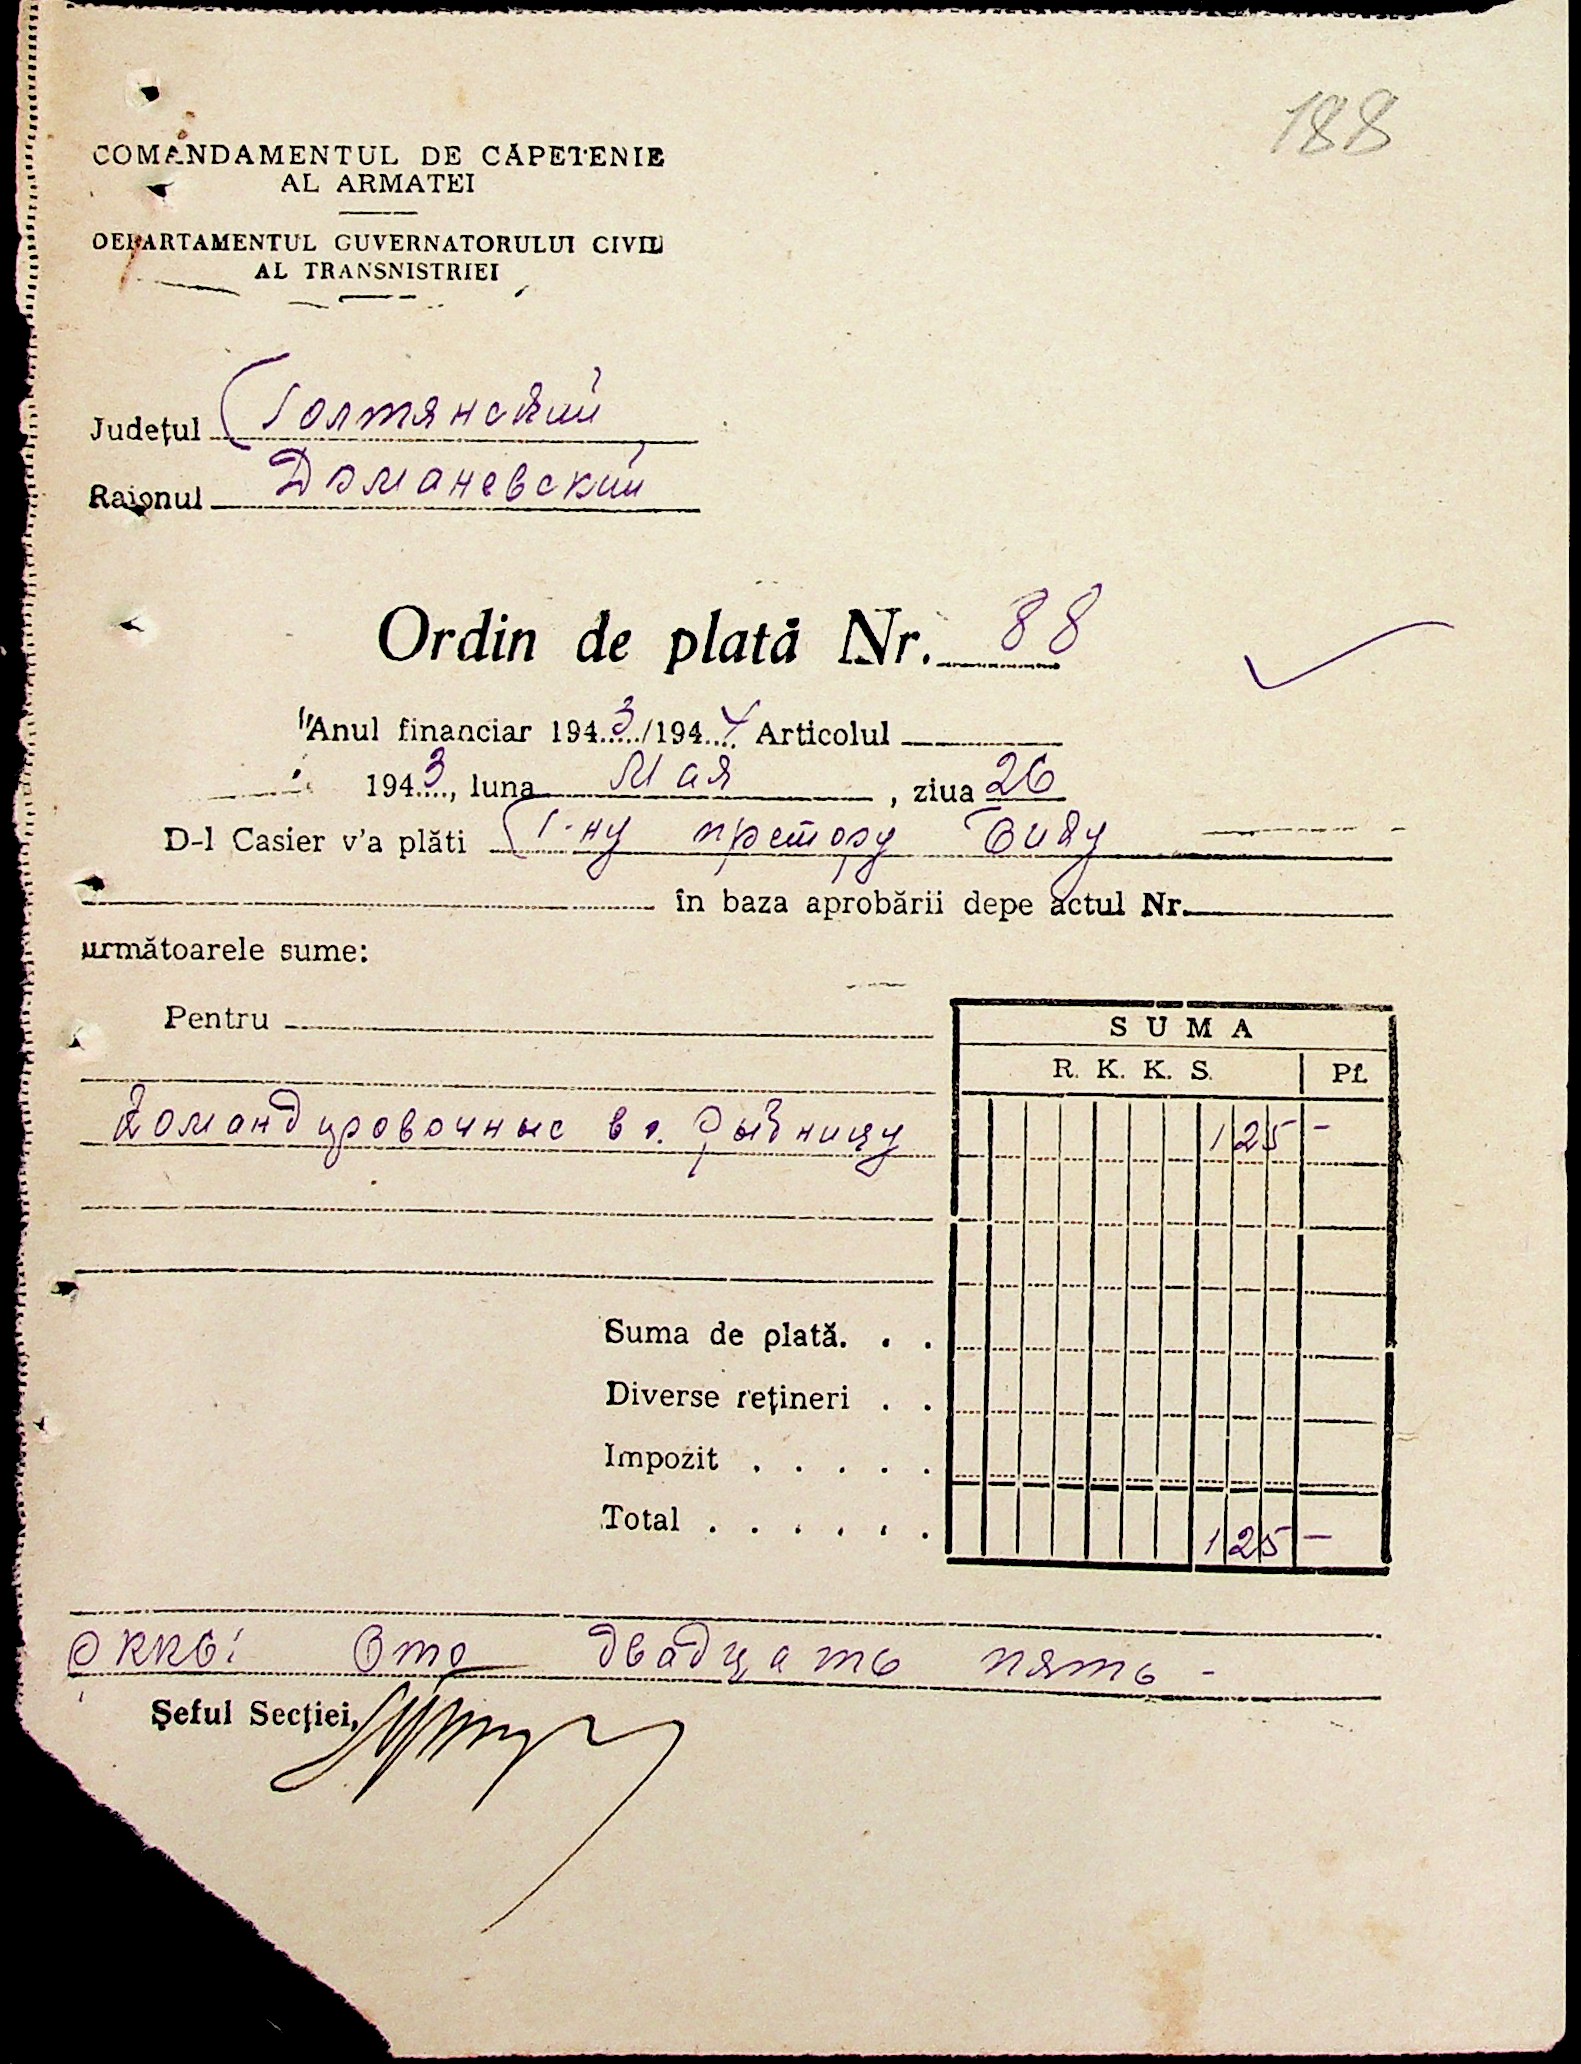 188
COMANDAMENTUL DE CĂPETENIE
AL ARMATEI
DEPARTAMENTUL GUVERNATORULUI CIVIL
AL TRANSNISTRIEI
Județul Голтянский
Raionul Доманевский
Ordin de plată Nr. 88
Anul financiar 1943/1944 Articolul
1943, luna Мая, ziua 26
D-l Casier v'a plăti Г-ну претору
în baza aprobării depe actul Nr.
următoarele sume:
Pentru
SUMA
R. K. K. S. Pf.
Командировочные в г. Рыбницу 125 -
Suma de plată. . .
Diverse rețineri . .
Impozit . . . . .
Total . . . . . . 125 -
Сто двадцать пять -
Șeful Secției,